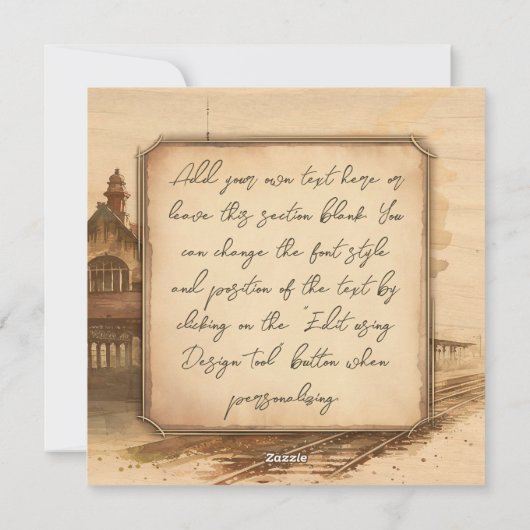 Add your own text here or
leave this section blank. You
can change the font style
and position of the text by
clicking on the "Edit using
Design Tool" button when
personalizing.
Zazzle